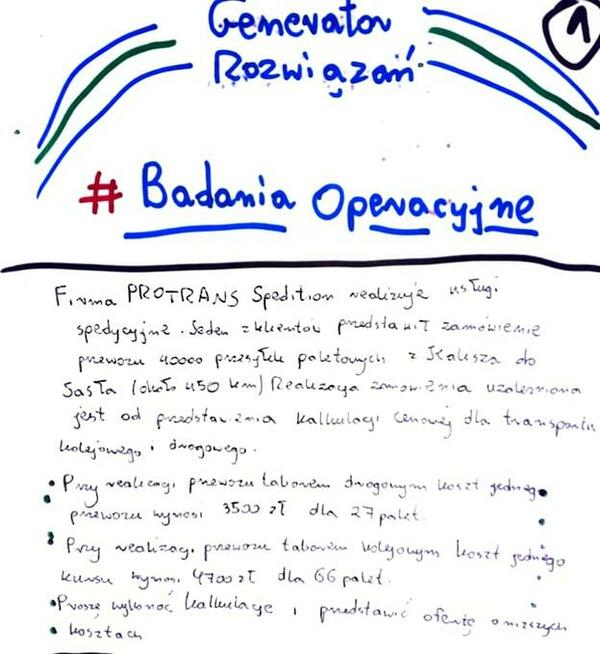 1
Generator
Rozwiązań
# Badania Operacyjne
Firma PROTRANS Spedition realizuje usługi
spedycyjne. Jeden z klientów przedstawił zamówienie
przewozu 40000 przesyłek paletowych z Kalisza do
Jasła (około 450 km) Realizacja zamówienia uzależniona
jest od przedstawienia kalkulacji cenowej dla transportu
kolejowego i drogowego.
• Przy realizacji przewozu taborem drogowym koszt jednego
przewozu wynosi 3500 zł dla 27 palet.
• Przy realizacji przewozu taborem kolejowym koszt jednego
kursu wynosi 4700 zł dla 66 palet.
• Proszę wykonać kalkulacje i przedstawić ofertę o niższych
• kosztach